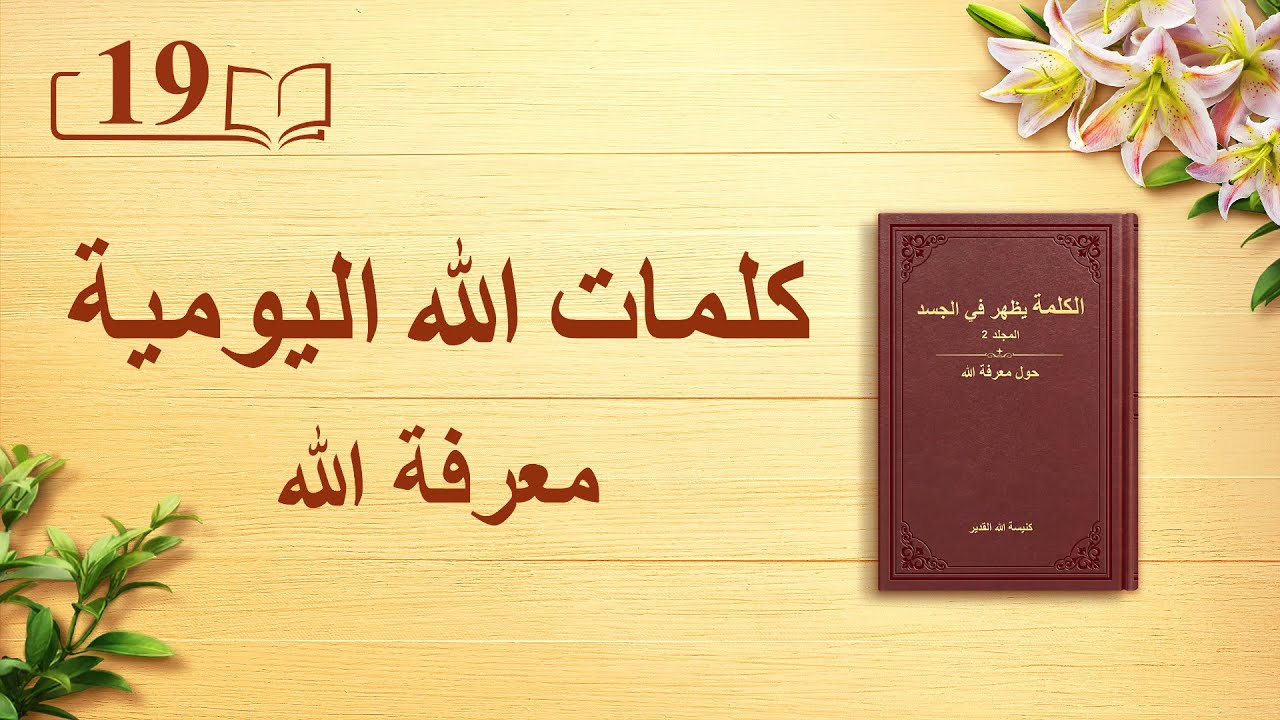 19
كلمات الله اليومية
معرفة الله
الكلمة يظهر في الجسد
المجلد 2
حول معرفة الله
كنيسة الله القدير